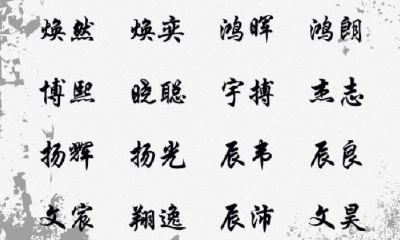 焕然 焕奕 鸿晖 鸿朗
博熙 晓聪 宇搏 杰志
扬辉 扬光 辰韦 辰良
文宸 翔逸 辰沛 文昊